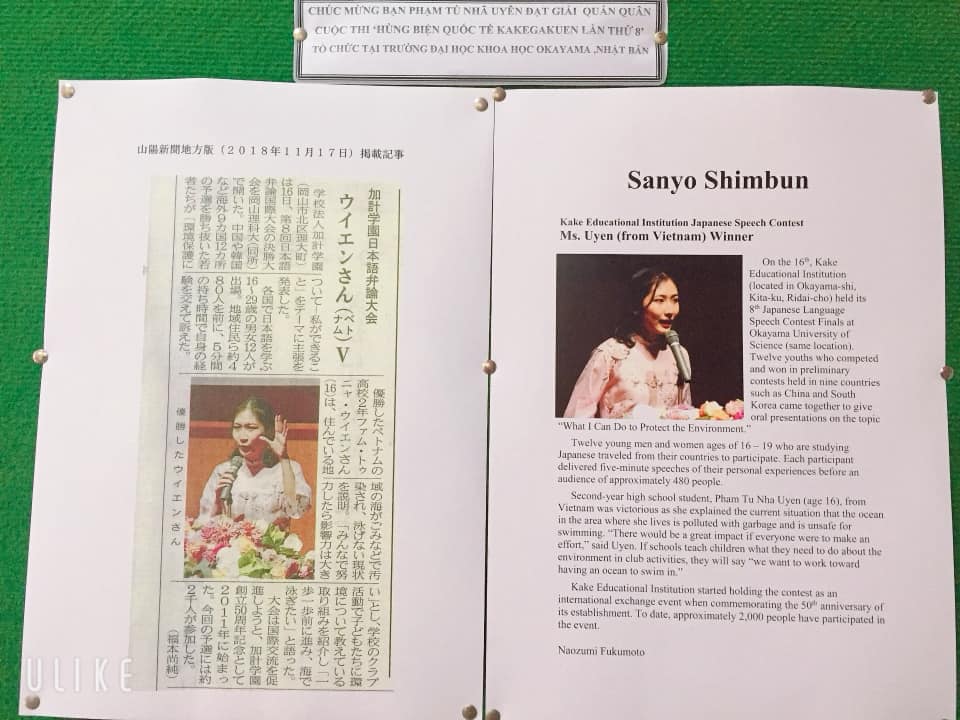 CHÚC MỪNG BẠN PHẠM TÚ NHÃ UYÊN ĐẠT GIẢI QUÁN QUÂN
CUỘC THI ‘HÙNG BIỆN QUỐC TẾ KAKEGAKUEN LẦN THỨ 8’
TỔ CHỨC TẠI TRƯỜNG ĐẠI HỌC KHOA HỌC OKAYAMA ,NHẬT BẢN
山陽新聞地方版（２０１８年１１月１７日）掲載記事
加計学園日本語弁論大会
ウイエンさん（ベトナム）V
学校法人加計学園
（岡山市北区理大町）
は16日、第８回日本語
弁論国際大会の決勝大
会を岡山理科大（同所）
で開いた。中国や韓国
など海外９カ国12カ所
の予選を勝ち抜いた若
者たちが「環境保護に
ついて、私ができるこ
と」をテーマに主張を
発表した。
各国で日本語を学ぶ
16〜29歳の男女12人が
出場。地域住民ら約４
８０人を前に、５分間
の持ち時間で自身の経
験を交えて訴えた。
優勝したベトナムの
高校２年ファム・トゥ・
ニャ・ウイエンさん
（16）は、住んでいる地
域の海がごみなどで汚
染され、泳げない現状
を説明。「みんなで努
力したら影響力は大き
い」とし、学校のクラブ
活動で子どもたちに環
境について教えている
取り組みを紹介し「一
歩一歩前に進み、海で
泳ぎたい」と語った。
大会は国際交流を促
進しようと、加計学園
創立50周年記念として
２０１１年に始まっ
た。今回の予選には約
２千人が参加した。
（福本尚純）
優勝したウイエンさん
Sanyo Shimbun
Kake Educational Institution Japanese Speech Contest
Ms. Uyen (from Vietnam) Winner
On the 16th, Kake
Educational Institution
(located in Okayama-shi,
Kita-ku, Ridai-cho) held its
8th Japanese Language
Speech Contest Finals at
Okayama University of
Science (same location).
Twelve youths who competed
and won in preliminary
contests held in nine countries
such as China and South
Korea came together to give
oral presentations on the topic
“What I Can Do to Protect the Environment.”
Twelve young men and women ages of 16 – 19 who are studying
Japanese traveled from their countries to participate. Each participant
delivered five-minute speeches of their personal experiences before an
audience of approximately 480 people.
Second-year high school student, Pham Tu Nha Uyen (age 16), from
Vietnam was victorious as she explained the current situation that the ocean
in the area where she lives is polluted with garbage and is unsafe for
swimming. “There would be a great impact if everyone were to make an
effort,” said Uyen. If schools teach children what they need to do about the
environment in club activities, they will say “we want to work toward
having an ocean to swim in.”
Kake Educational Institution started holding the contest as an
international exchange event when commemorating the 50th anniversary of
its establishment. To date, approximately 2,000 people have participated in
the event.
Naozumi Fukumoto
ULIKE